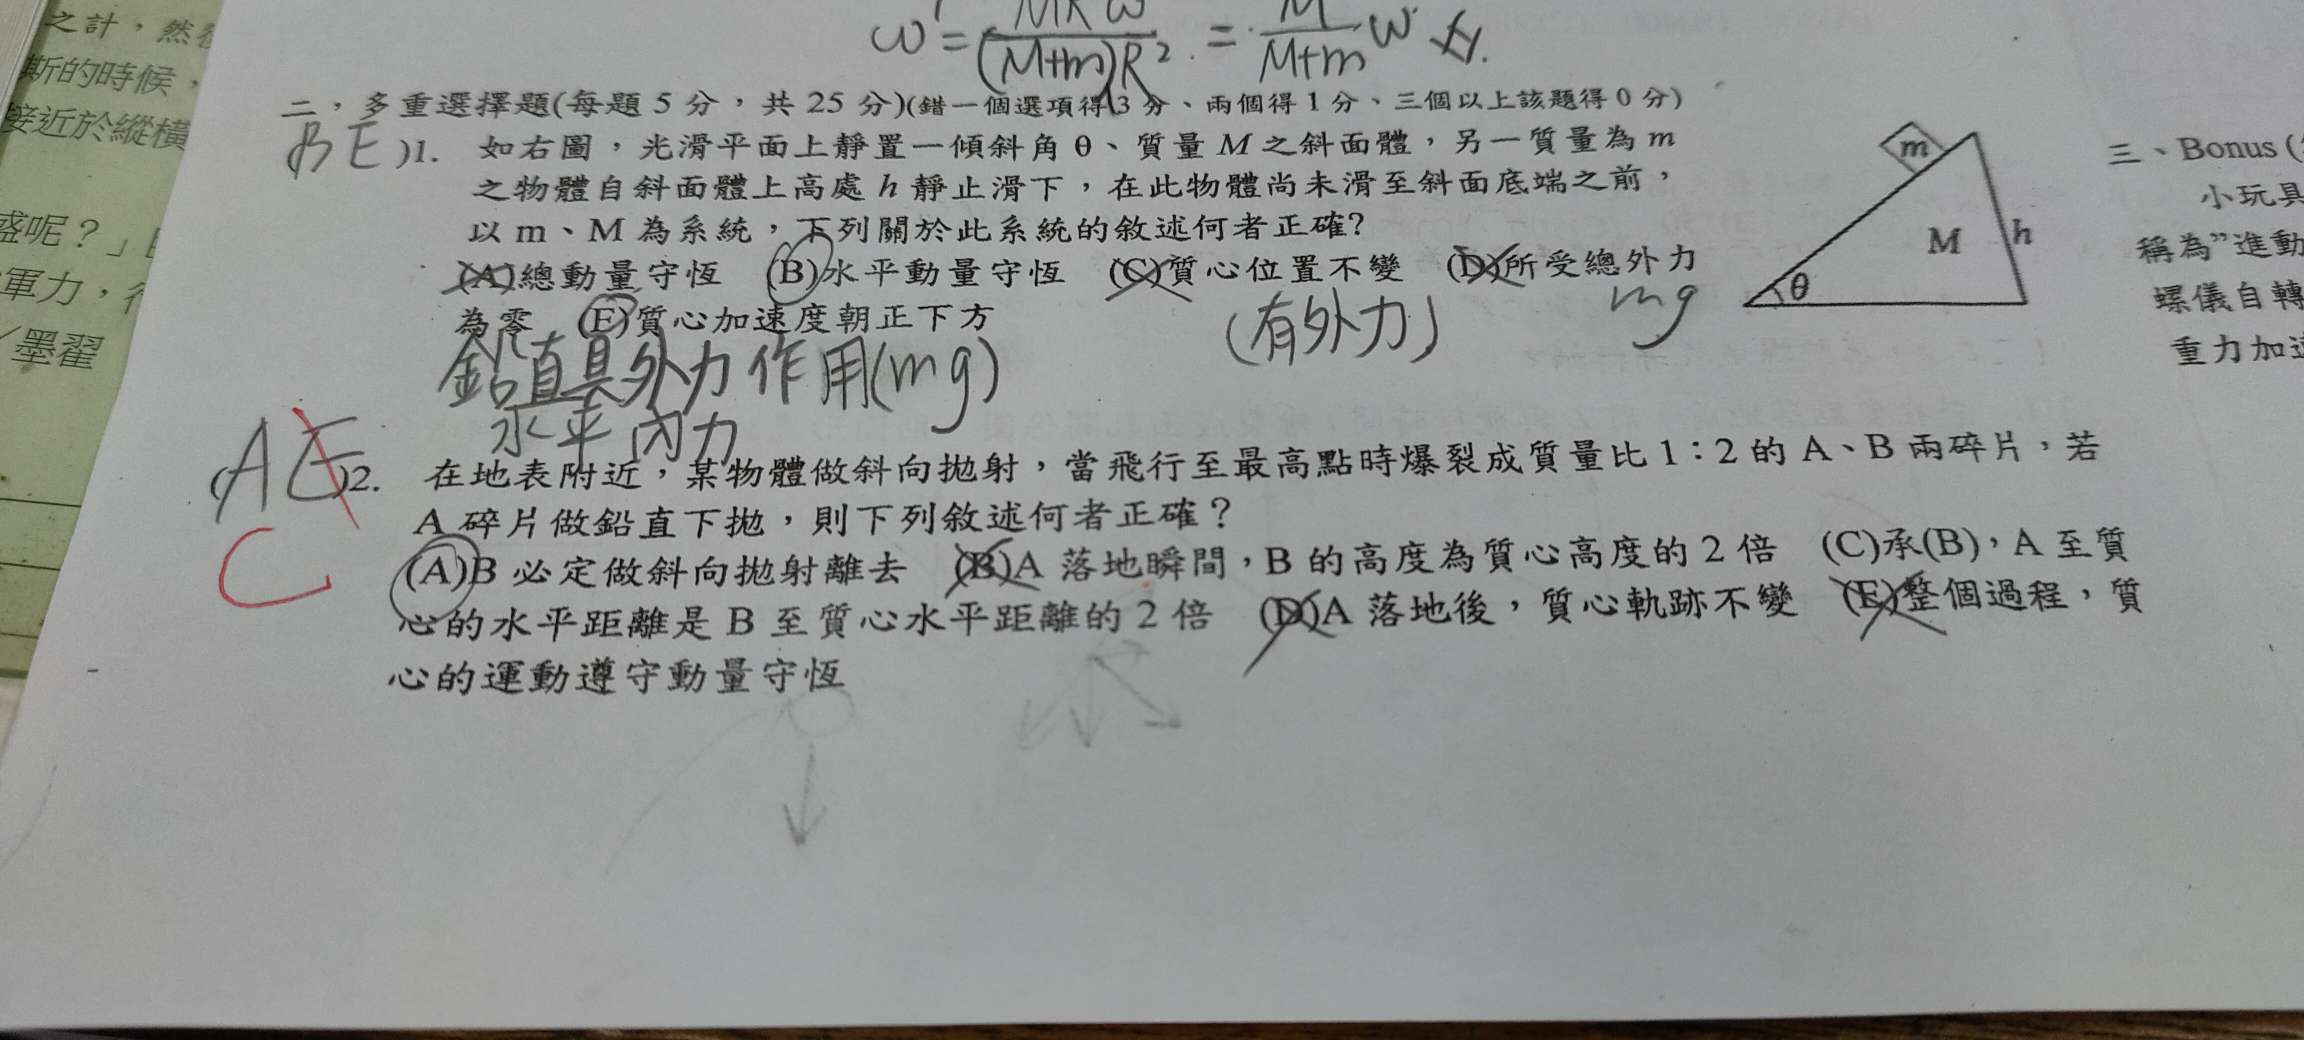 之計，然
斯的時候，
接近於縱橫
盛呢？」
軍力，
／墨翟
ω' = MRω / (M+m)R² = M / M+m ω
二，多重選擇題(每題 5 分，共 25 分)(錯一個選項得 3 分、兩個得 1 分、三個以上該題得 0 分)
BE )1. 如右圖，光滑平面上靜置一傾斜角 θ、質量 M 之斜面體，另一質量為 m
之物體自斜面體上高處 h 靜止滑下，在此物體尚未滑至斜面底端之前，
以 m、M 為系統，下列關於此系統的敘述何者正確?
(A)總動量守恆 (B)水平動量守恆 (C)質心位置不變 (D)所受總外力
為零 (E)質心加速度朝正下方
(有外力)
mg
鉛直具外力作用(mg)
水平內力
m
M
h
θ
(AE)2. 在地表附近，某物體做斜向拋射，當飛行至最高點時爆裂成質量比 1：2 的 A、B 兩碎片，若
C
A 碎片做鉛直下拋，則下列敘述何者正確？
(A)B 必定做斜向拋射離去 (B)A 落地瞬間，B 的高度為質心高度的 2 倍 (C)承(B)，A 至質
心的水平距離是 B 至質心水平距離的 2 倍 (D)A 落地後，質心軌跡不變 (E)整個過程，質
心的運動遵守動量守恆
三、Bonus (
小玩具
稱為”進動
螺儀自轉
重力加